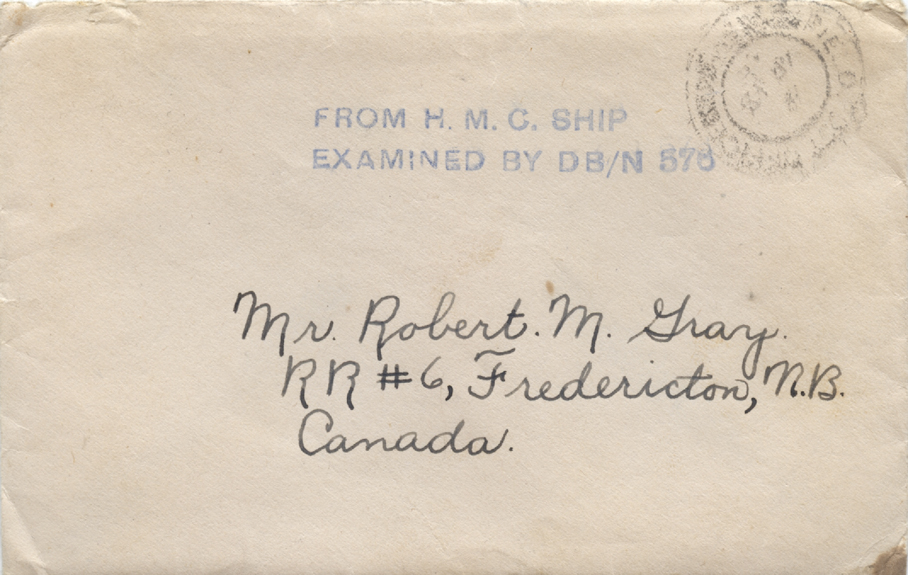 FROM H. M. C. SHIP
EXAMINED BY DB/N 576
Mr. Robert. M. Gray.
RR #6, Fredericton, N.B.
Canada.